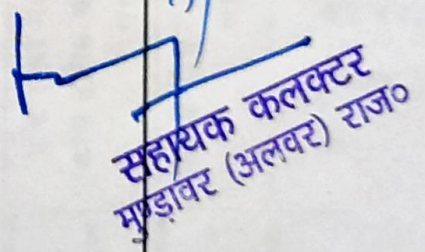 सहायक कलक्टर
मुण्डावर (अलवर) राज०